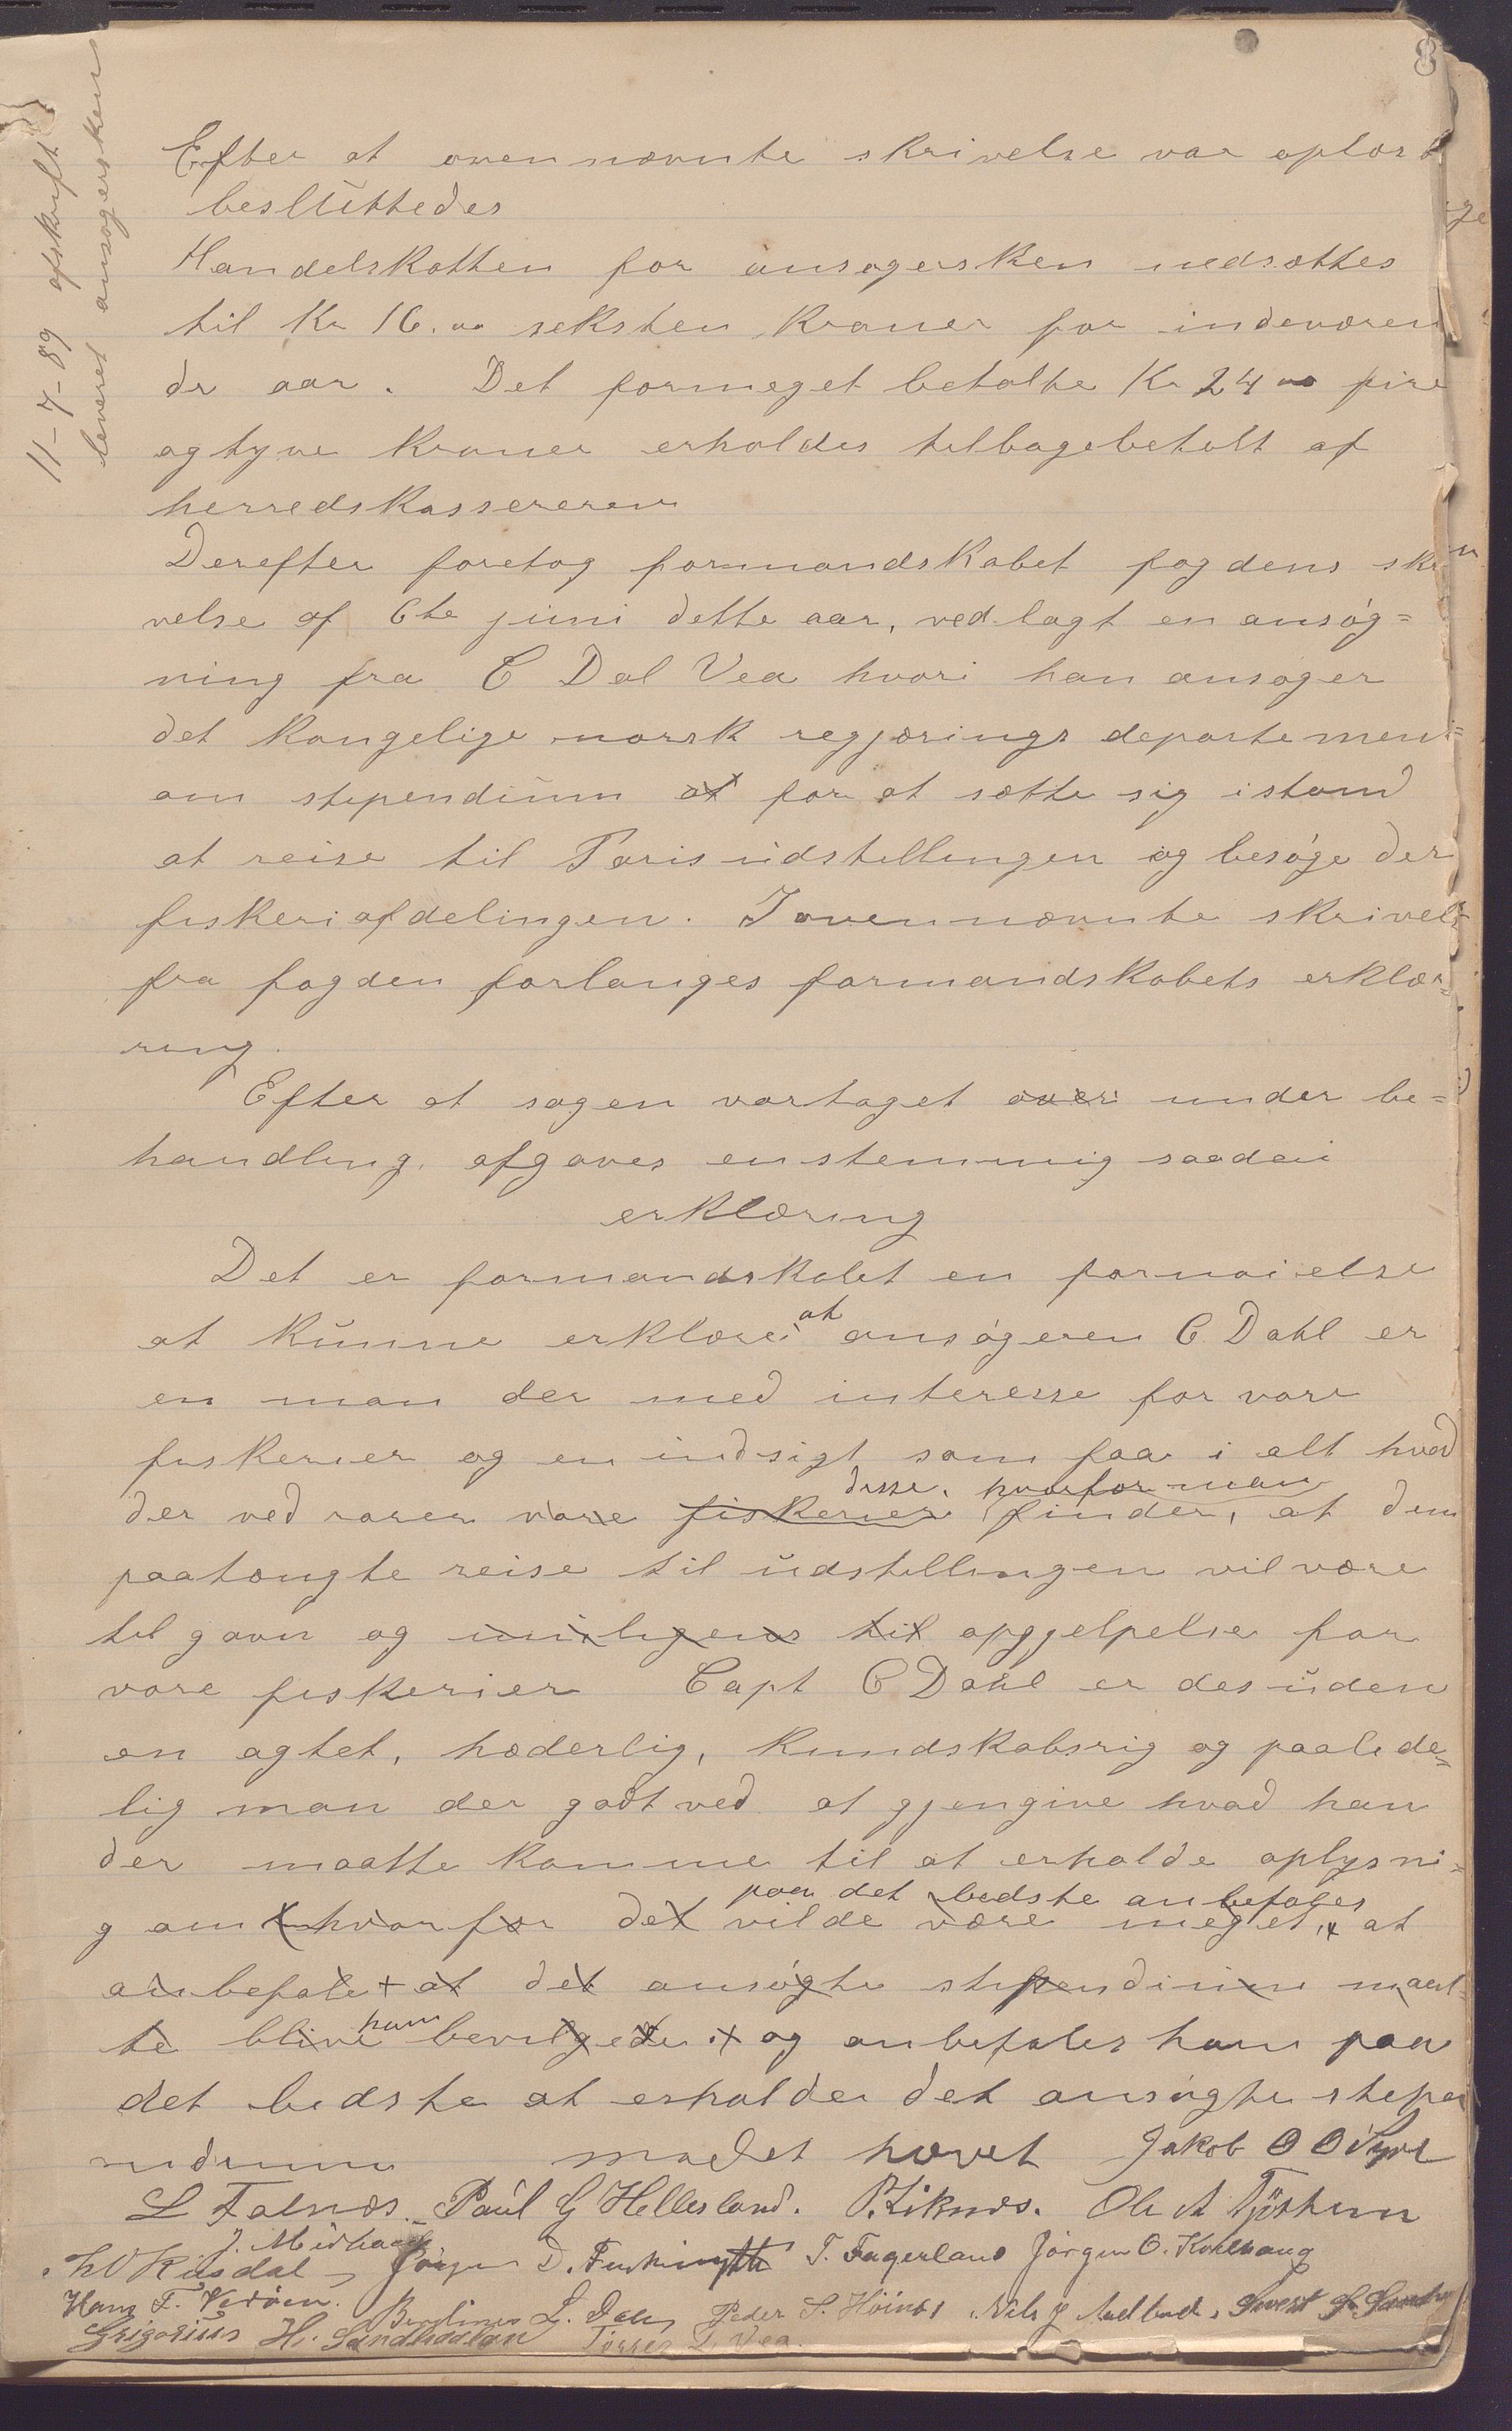 8
11-7-89 afskrift
leveret ansøgersken
Efter at ovennævnte skrivelse var oplæst
besluttedes
Handelskatten for ansøgersken nedsættes
til Kr 16.00 seksten Kroner for indeværen
de aar. Det formeget betalte Kr 24 00 fire
ogtyve Kroner erholdes tilbagebetalt af
herredskassereren
Derefter foretog formandskabet fogdens skri
velse af 6te juni dette aar, vedlagt en ansøg=
ning fra C Dal Vea hvori han ansøger
det kongelige norsk regjærings departement=
om stipendium at for at sætte sig istand
at reise til Parisudstillingen og besøge der
fiskeriafdelingen. I ovennævnte skrivels
fra fogden forlanges formandskabets erklæ=
ring.
Efter at sagen vartaget over under be=
handling, afgaves enstemmig saadan
erklæring
Det er formandskabet en fornøielse
at kunne erklære at ansøgeren C. Dahl er
en man der med interesse for vore
fiskerier og en indsigt som faa i alt hvad
disse, hvorfor man
der vedrører vore fiskerier finder, at den
paatængte reise til udstillingen vil være
til gavn og til opgjelpelse for
vore fiskerier Capt C Dahl er desuden
en agtet, hæderlig, kundskabsrig og paalide=
lig man der godt ved at gjengive hvad han
der maatte komme til at erholde oplysni=
paa det bedste anbefales
g om hvorfor det vilde være meget at
anbefale at det ansøgte stipendium maat=
te blive ham bevilgede og anbefales ham paa
det bedste at erholder det ansøgte stipe
ndium mødet hævet Jakob O O Syre
L Falnæs. Paul G Hellesland. P. Liknæs. Ole A Tjøstem
J. Midhaug
Risdal Jørgen D. T. Fagerland Jørgen O. Kolhaug
Hans T. Vedøen. L. Dale Peder S. Höines Nils J Sivert S. Sandve
Grigorius H. Sandhaaland Torres L. Vea.